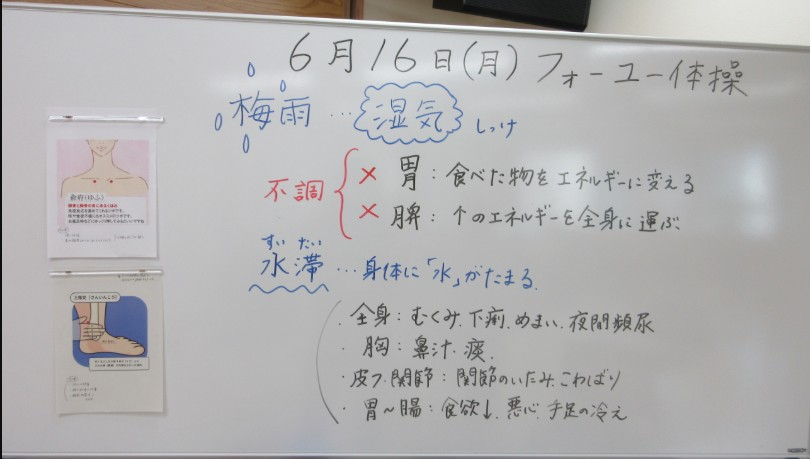 6月16日(月) フォーユー体操
梅雨 … 湿気 しっけ
不調
× 胃：食べた物をエネルギーに変える
× 脾：↑のエネルギーを全身に運ぶ
すい たい
水滞 … 身体に「水」がたまる
・全身：むくみ、下痢、めまい、夜間頻尿
・胸：鼻汁、痰
・皮フ、関節：関節のいたみ、こわばり
・胃〜腸：食欲↓、悪心、手足の冷え
兪府(ゆふ)
三陰交(さんいんこう)